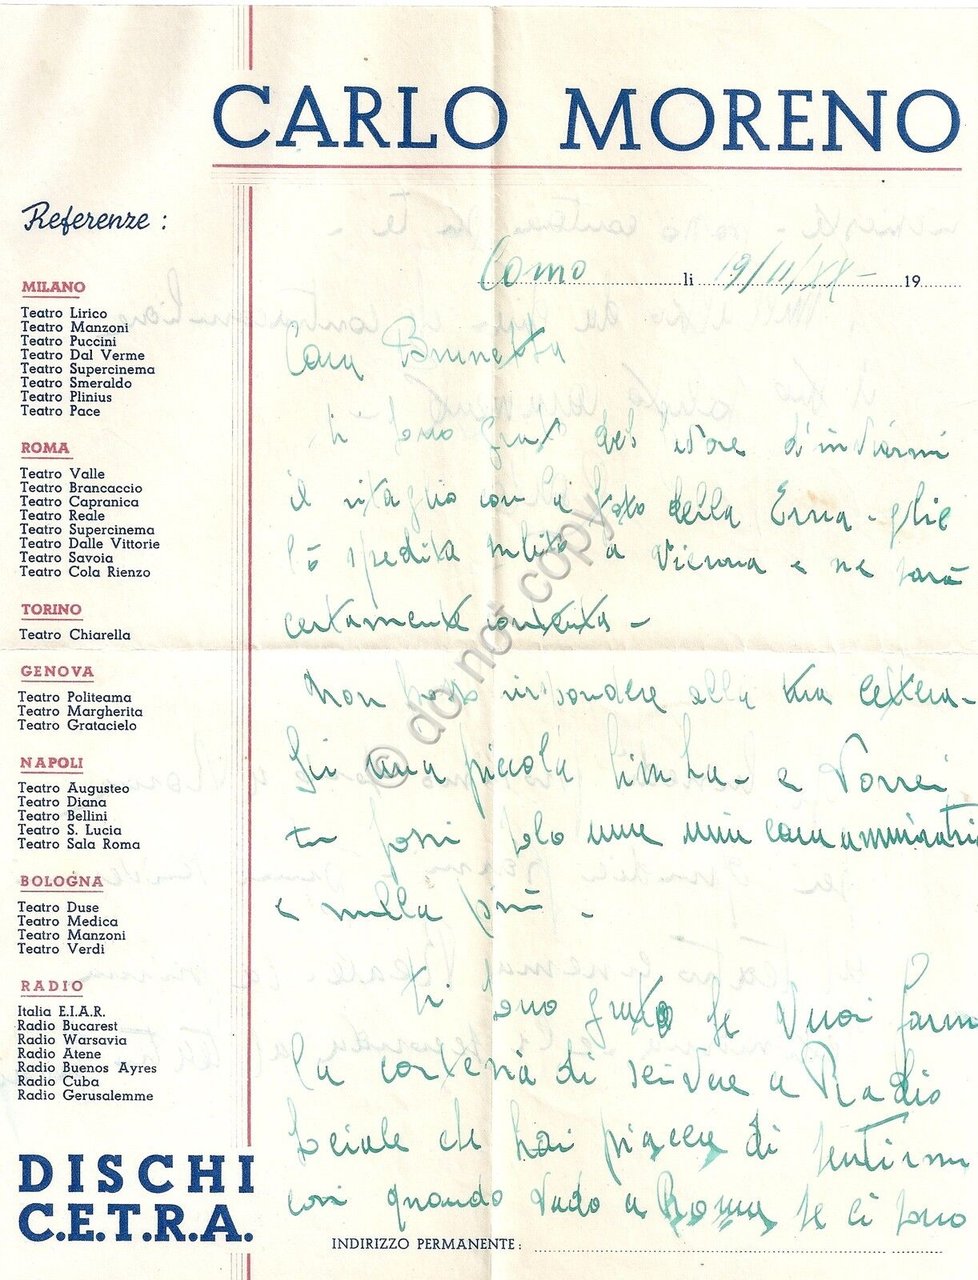 CARLO MORENO
Referenze:
MILANO
Teatro Lirico
Teatro Manzoni
Teatro Puccini
Teatro Dal Verme
Teatro Supercinema
Teatro Smeraldo
Teatro Plinius
Teatro Pace
ROMA
Teatro Valle
Teatro Brancaccio
Teatro Capranica
Teatro Reale
Teatro Supercinema
Teatro Dalle Vittorie
Teatro Savoia
Teatro Cola Rienzo
TORINO
Teatro Chiarella
GENOVA
Teatro Politeama
Teatro Margherita
Teatro Gratacielo
NAPOLI
Teatro Augusteo
Teatro Diana
Teatro Bellini
Teatro S. Lucia
Teatro Sala Roma
BOLOGNA
Teatro Duse
Teatro Medica
Teatro Manzoni
Teatro Verdi
RADIO
Italia E.I.A.R.
Radio Bucarest
Radio Warsavia
Radio Atene
Radio Buenos Ayres
Radio Cuba
Radio Gerusalemme
DISCHI
C.E.T.R.A.
Como li 19/11/XX - 19
Cara Brunetta
ti sono grato del d'inviarmi
il ritaglio con la foto della Erna - glie
l'ò spedita subito a Vienna e ne sarà
certamente contenta -
Non posso rispondere alla tua lettera -
Sei una piccola bimba - e vorrei
tu fossi solo una mia cara ammiratri
e nulla più -
Ti sono grato se vuoi farmi
la cortesia di scrivere a Radio
Sociale che hai piacere di sentirmi
così quando vado a Roma se ci sono
INDIRIZZO PERMANENTE:
© do not copy